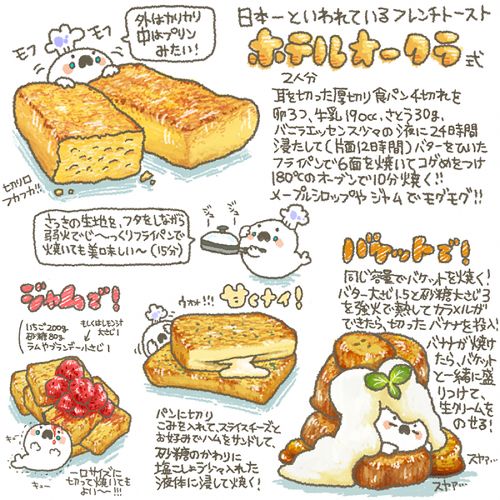 モフ
モフ
外はカリカリ
中はプリン
みたい!
日本一といわれているフレンチトースト
ホテルオークラ式
2人分
耳を切った厚切り食パン4切れを
卵3つ、牛乳190cc、さとう30g、
バニラエッセンス少々の液に24時間
浸たして(片面12時間)バターをひいた
フライパンで6面を焼いてコゲめをつけ
180℃のオーブンで10分焼く!!
メープルシロップや ジャムでモグモグ!!
切り口
フカフカ!!
さっきの生地を、フタをしながら
弱火でじ〜っくりフライパンで
焼いても美味しい〜(15分)
ジュー
ジュー
ジャムで!
いちご200g
砂糖80g
ラムやブランデー小さじ1
もしくはレモン汁
大さじ1
キュー
キュー
一口サイズに
切って焼いても
よい〜!!!
ウオォ!!!
甘くナイ!
パンに切り
こみを入れて、スライスチーズと
お好みでハムをサンドして、
砂糖のかわりに
塩こしょう少々入れた
液体に浸して焼く!
バケットで!
同じ容量でバケットを焼く!
バター大さじ1.5と砂糖大さじ3
を強火で熱してカラメルが
できたら、切ったバナナを投入!
バナナが焼け
たら、バケット
と一緒に盛
りつけて、
生クリームを
のせる!
スヤァ…
スヤァ…